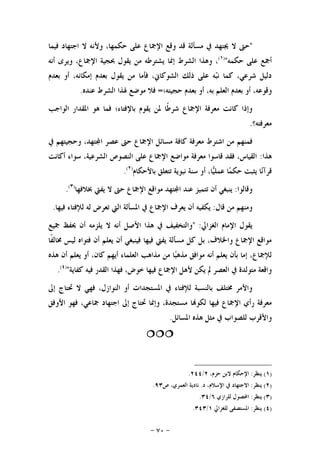 "حتى لا يجتهد في مسألة قد وقع الإجماع على حكمها، ولأنه لا اجتهاد فيما
أجمع على حكمه"(١)، وهذا الشرط إنما يشترطه من يقول بحجية الإجماع، ويرى أنه
دليل شرعي، كما نبّه على ذلك الشوكاني، فأما من يقول بعدم إمكانه، أو بعدم
وقوعه، أو بعدم العلم به، أو بعدم حجيته؛= فلا موضع لهذا الشرط عنده.
وإذا كانت معرفة الإجماع شرطًا لمن يقوم بالإفتاء؛ فما هو المقدار الواجب
معرفته؟.
فمنهم من اشترط معرفة كافة مسائل الإجماع حتى عصر المجتهد، وحجيتهم في
هذا: القياس، فقد قاسوا معرفة مواضع الإجماع على النصوص الشرعية، سواء أكانت
قرآنًا يثبت حكمًا عمليًا، أو سنة نبوية تتعلق بالأحكام(٢).
وقالوا: ينبغي أن تتميز عند المجتهد مواقع الإجماع حتى لا يفتي بخلافها(٣).
ومنهم من قال: يكفيه أن يعرف الإجماع في المسألة التي تعرض له للإفتاء فيها.
يقول الإمام الغزالي: "والتخفيف في هذا الأصل أنه لا يلزمه أن يحفظ جميع
مواقع الإجماع والخلاف، بل كل مسألة يفتي فيها فينبغي أن يعلم أن فتواه ليس مخالفًا
للإجماع، إما بأن يعلم أنه موافق مذهبًا من مذاهب العلماء أيهم كان، أو يعلم أن هذه
واقعة متولدة في العصر لم يكن لأهل الإجماع فيها خوض، فهذا القدر فيه كفاية"(٤).
والأمر مختلف بالنسبة للإفتاء في المستجدات أو النوازل، فهي لا تحتاج إلى
معرفة رأي الإجماع فيها لكونها مستجدة، وإنما تحتاج إلى اجتهاد جماعي، فهو الأوفق
والأقرب للصواب في مثل هذه المسائل.
(١) ينظر: الإحكام لابن حزم، ٢٤٤/٢.
(٢) ينظر: الاجتهاد في الإسلام، د. نادية العمري، ص٩٣.
(٣) ينظر: المحصول للرازي ٣٤/٦.
(٤) ينظر: المستصفى للغزالي ٣٤٣/١.
- ٧٠ -